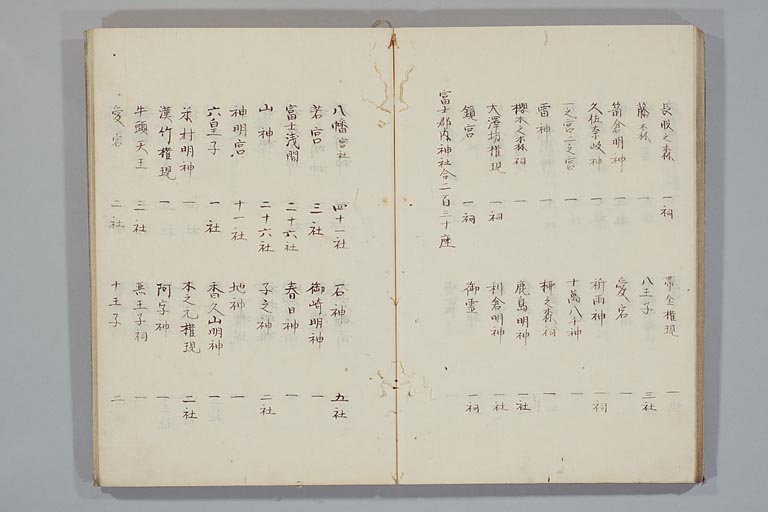 長股之森 一祠 帶金権現 一
藤森 一 八王子 三社
箭倉明神 一 愛宕 一
久佐奈岐神 一 祈雨神 一祠
一之宮二之宮 一 十萬八千神 一
雷神 一 柳之森祠 一
櫻木之森祠 一 鹿島明神 一社
大澤坊権現 一祠 利倉明神 一社
鎮宮 一祠 御霊 一祠
富士郡内神社合二百三十座
八幡宮社 四十一社 石神 五社
若宮 三社 御崎明神 一
富士浅間 二十六社 春日神 一
山神 二十六社 子之神 二社
神明宮 十一社 地神 一
六皇子 一社 香久山明神 一社
米村明神 一 木之元権現 二社
漢竹権現 一 阿字神 一
牛頭天王 三社 悪王子祠 一
愛宕 二社 十王子 二